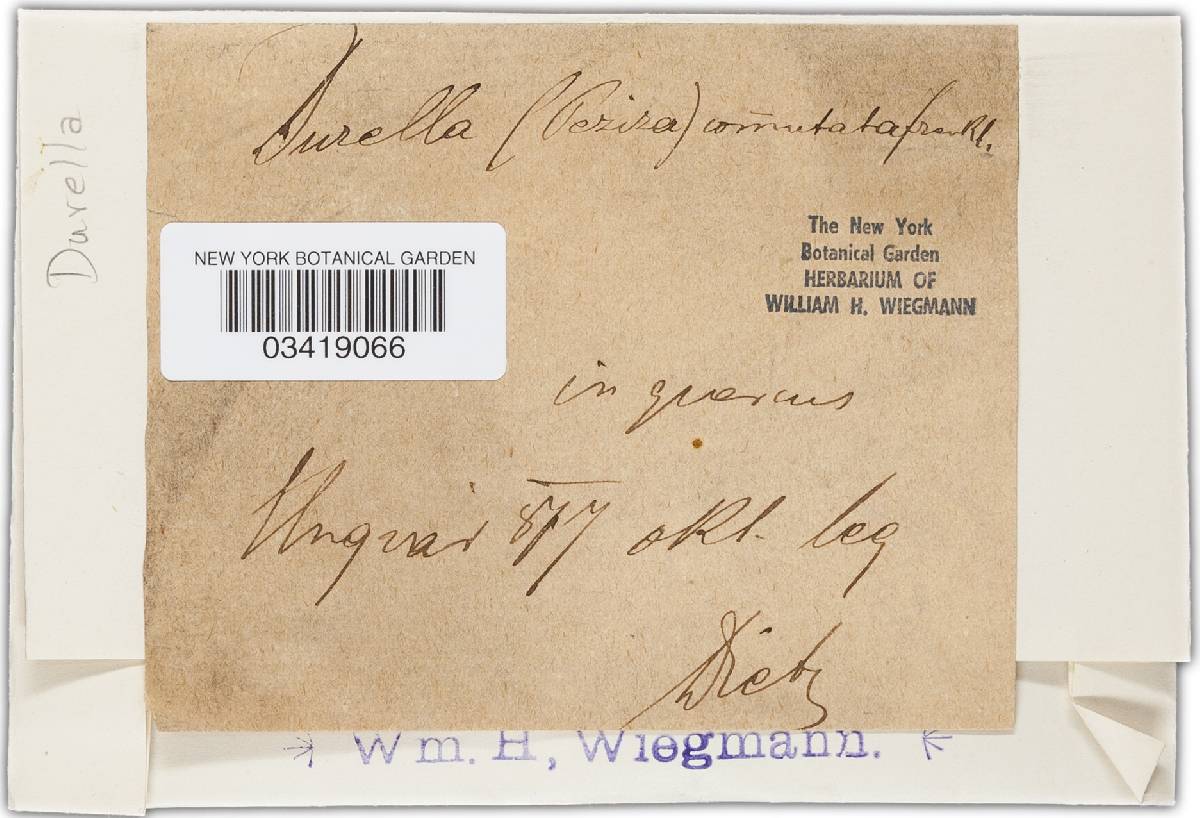 Durella (Peziza) com̄utata frckl.
The New York
Botanical Garden
HERBARIUM OF
WILLIAM H. WIEGMANN
NEW YORK BOTANICAL GARDEN
03419066
in quercus
Ungvár 877 okt. leg
Dietz
Wm. H, Wiegmann.
Durella